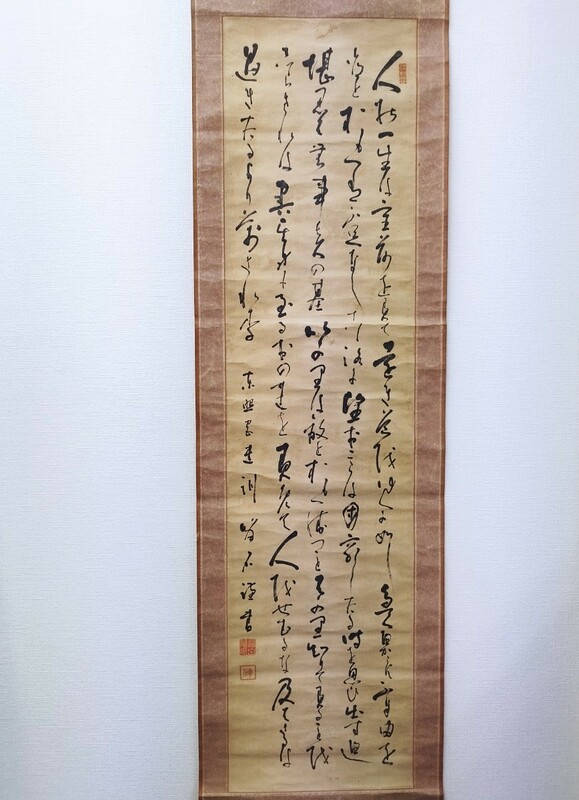 人の一生は重荷を負て遠き道をゆくが如し急べからず不自由を
常とおもへは不足なし心に望おこらは困窮したる時を思ひ出すべし
堪忍は無事長久の基いかりは敵とおもへ勝つことのみ知りて負ることを
しらされは害其身に至るおのれを責て人をせむるな及はさるは
過きたるよりまされり 東照宮遺訓 石謹書